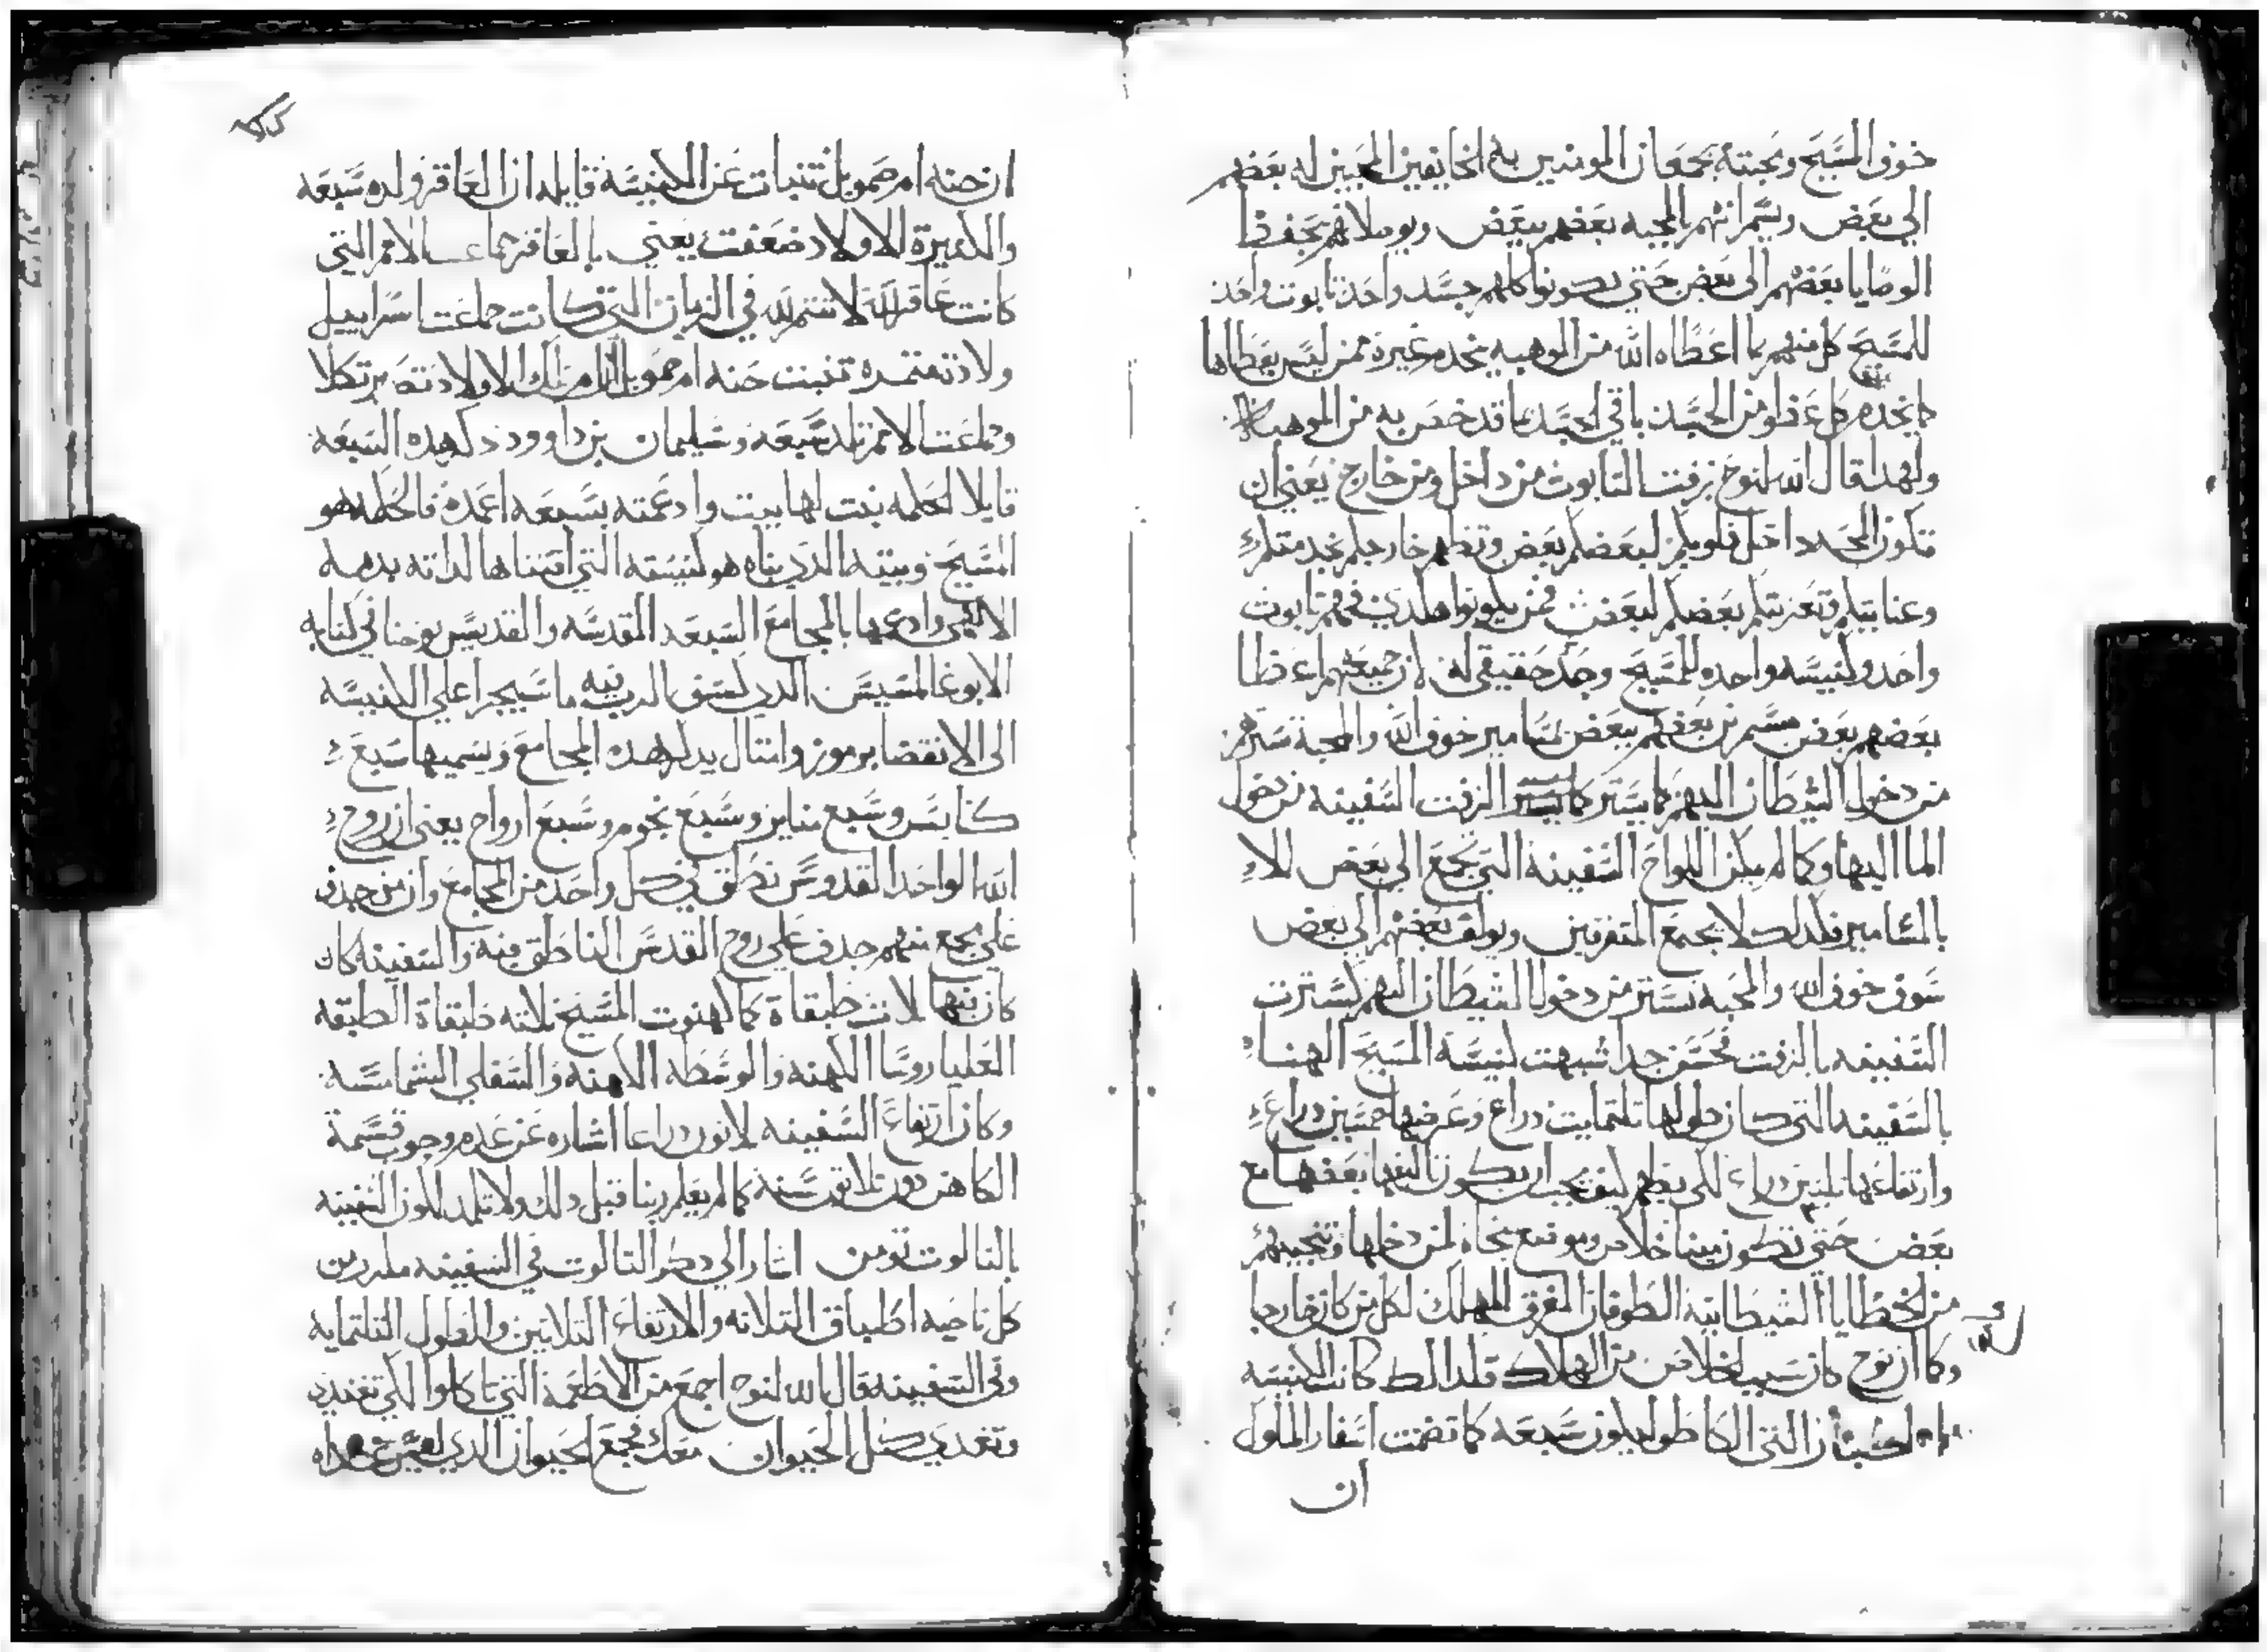 خوف المسيح ومحبته يجمعان المومنين به الخايفين المحبين له بعضهم
الي بعض ويسمرانهم بالمحبه بعضهم ببعض ويوصلانهم بحفظ
الوصايا بعضهم الى بعض حتي يكونوا كلهم جسد واحد تابوت واحد
للمسيح كل منهم بما اعطاه الله من الموهبه يخدم غيره ممن ليس يعطاها
كما يخدم كل عضو من الجسد باقي الجسد بما قد خص به من الموهبه
ولهدا قال الله لنوح زفت التابوت من داخل ومن خارج يعني ان
تكون المحبه داخل قلوبكم لبعضكم بعض وتظهر خارجكم بخدمتكم
وعنايتكم وتعزيتكم بعضكم لبعض فمن يكونوا هكدي فهم تابوت
واحد وكنيسه واحده للمسيح وجسد حقيقي له لان جميعهم اعضا
بعضهم بعض مسمرين بعضهم ببعض بمسامير خوف الله والمحبة تسترهم
من دخول الشيطان اليهم كما يستر الزفت السفينه من دخول
الما اليها وكما لم يكن الواح السفينة التي تجمع الي بعض الا
بالمسامير فكدلك لا يجمع المتفرقين ويولف بعضهم الي بعض
سوى خوف الله والمحبة تستر من دخول الشيطان اليهم كسترت
السفينه بالزفت فحسن جدا شبهت كنيسة المسيح الهنا
بالسفينه التي كان طولها تلتمايت دراع وعرضها خمسين دراع
وارتفاعها تلتين دراع لكي يظهر كيف يجب ان يكون تاليفها بعضها مع
بعض حتي تكون مينا خلاص وموضع نجاه لمن دخلها وتنجيهم
من الخطايا الشيطانية الطوفان المغرق المهلك لكل من كان خارجا
وكما ان نوح كان سبب الخلاص من الهلاك فكدالك كانت الكنيسه
سبعه كما تضمنت اسفار الملوك
ان
ان حنه ام صمويل تنبات عن الكنيسه قايله ان العاقر ولده سبعه
والكتيرة الاولاد ضعفت يعني بالعاقر جماعت الامم التي
كانت عاقر لله لا تتمر لله في الزمان التي كانت جماعت اسراييل
ولادته تنبت حنه ام صمويل ان ام تلك الاولاد تصير تكلا
وجماعت الامم تلد سبعه وسليمان بن داوود دكر هده السبعه
قايلا الحكمه بنت لها بيت وادعمته بسبعه اعمدة فالحكمه هو
المسيح وبيته الدي بناه هو كنيسته التي اقتناها لداته بدمه
الالهي وادعمها بالمجامع السبعه المقدسه والقديس يوحنا في كتابه
الابوغالمسيس الدي كشف الرب فيه ما سيجرا علي الكنيسه
الى الانقضا برموز وامتال يدكر هده المجامع ويسميها سبع
كنايس وسبع مناير وسبع نجوم وسبع ارواح يعني ان روح
الله الواحد القدوس نطق في كل واحد من المجامع وان من جدف
علي مجمع منهم جدف علي روح القدس الناطق فيه والسفينه كان
كان فيها تلات طبقاة كما كهنوت المسيح تلاته طبقاة الطبقه
العليا روسا الكهنه والوسطه الكهنه والسفلي الشمامسه
وكان ارتفاع السفينه تلاتون دراعا اشاره عن عدم وجوب قسمة
الكاهن دون تلاتون سنه كما لم يعلم ربنا قبل دلك ولا تلمد لكون السفينه
بالتالوت تومن اشار الي دكر التالوت في السفينه مكررين
كل ناحيه اطباق التلاته والارتفاع التلاتين والطول التلتمايه
وفي السفينه قال الله لنوح اجمع من الاطعمة التي تاكلوا لكي تغتدي
وتغدي كل الحيوان معك فجمع الحيوان الدي